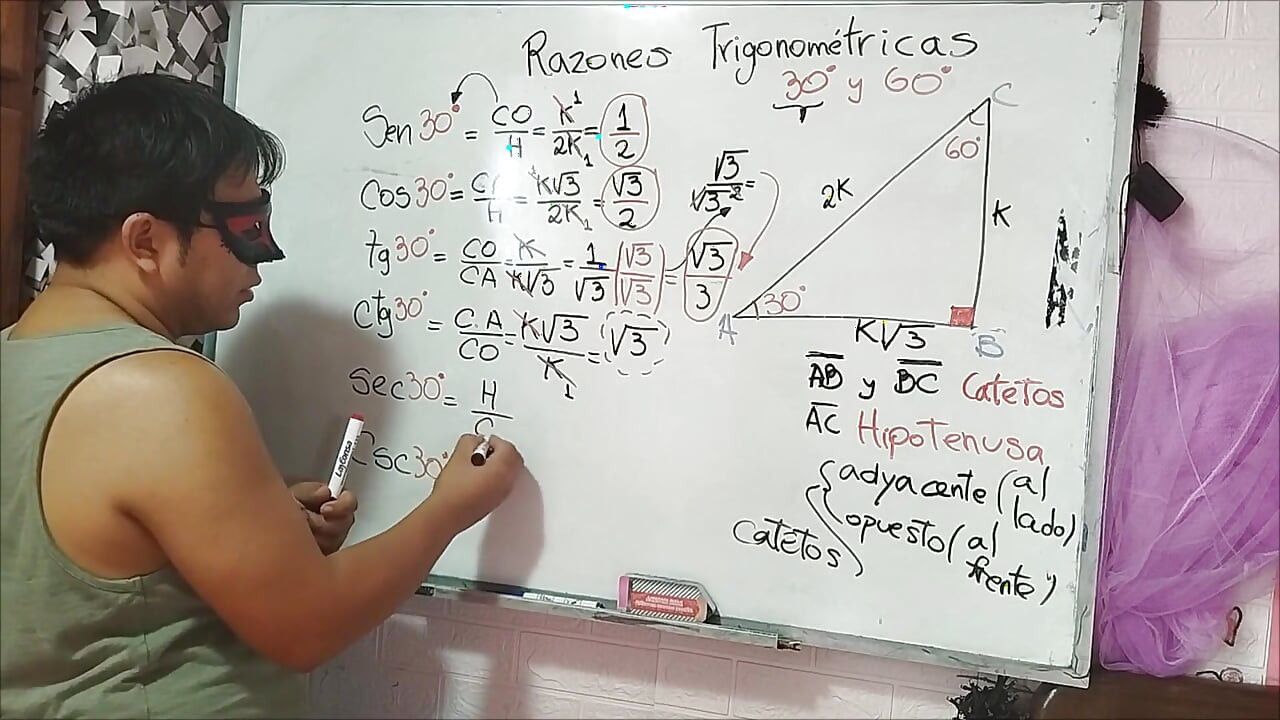 Razones Trigonométricas
30° y 60°
Sen 30° = CO/H = K/2K = 1/2
1
1
Cos 30° = CA/H = K√3/2K = √3/2
1
tg 30° = CO/CA = K/K√3 = 1/√3 (√3/√3) = √3/3
√3/√3² =
Ctg 30° = C.A/CO = K√3/K = √3
1
Sec 30° = H/C
Csc 30°
C
60°
2K
K
30°
A
K√3
B
AB y BC Catetos
AC Hipotenusa
Catetos
adyacente (al lado)
opuesto (al frente)